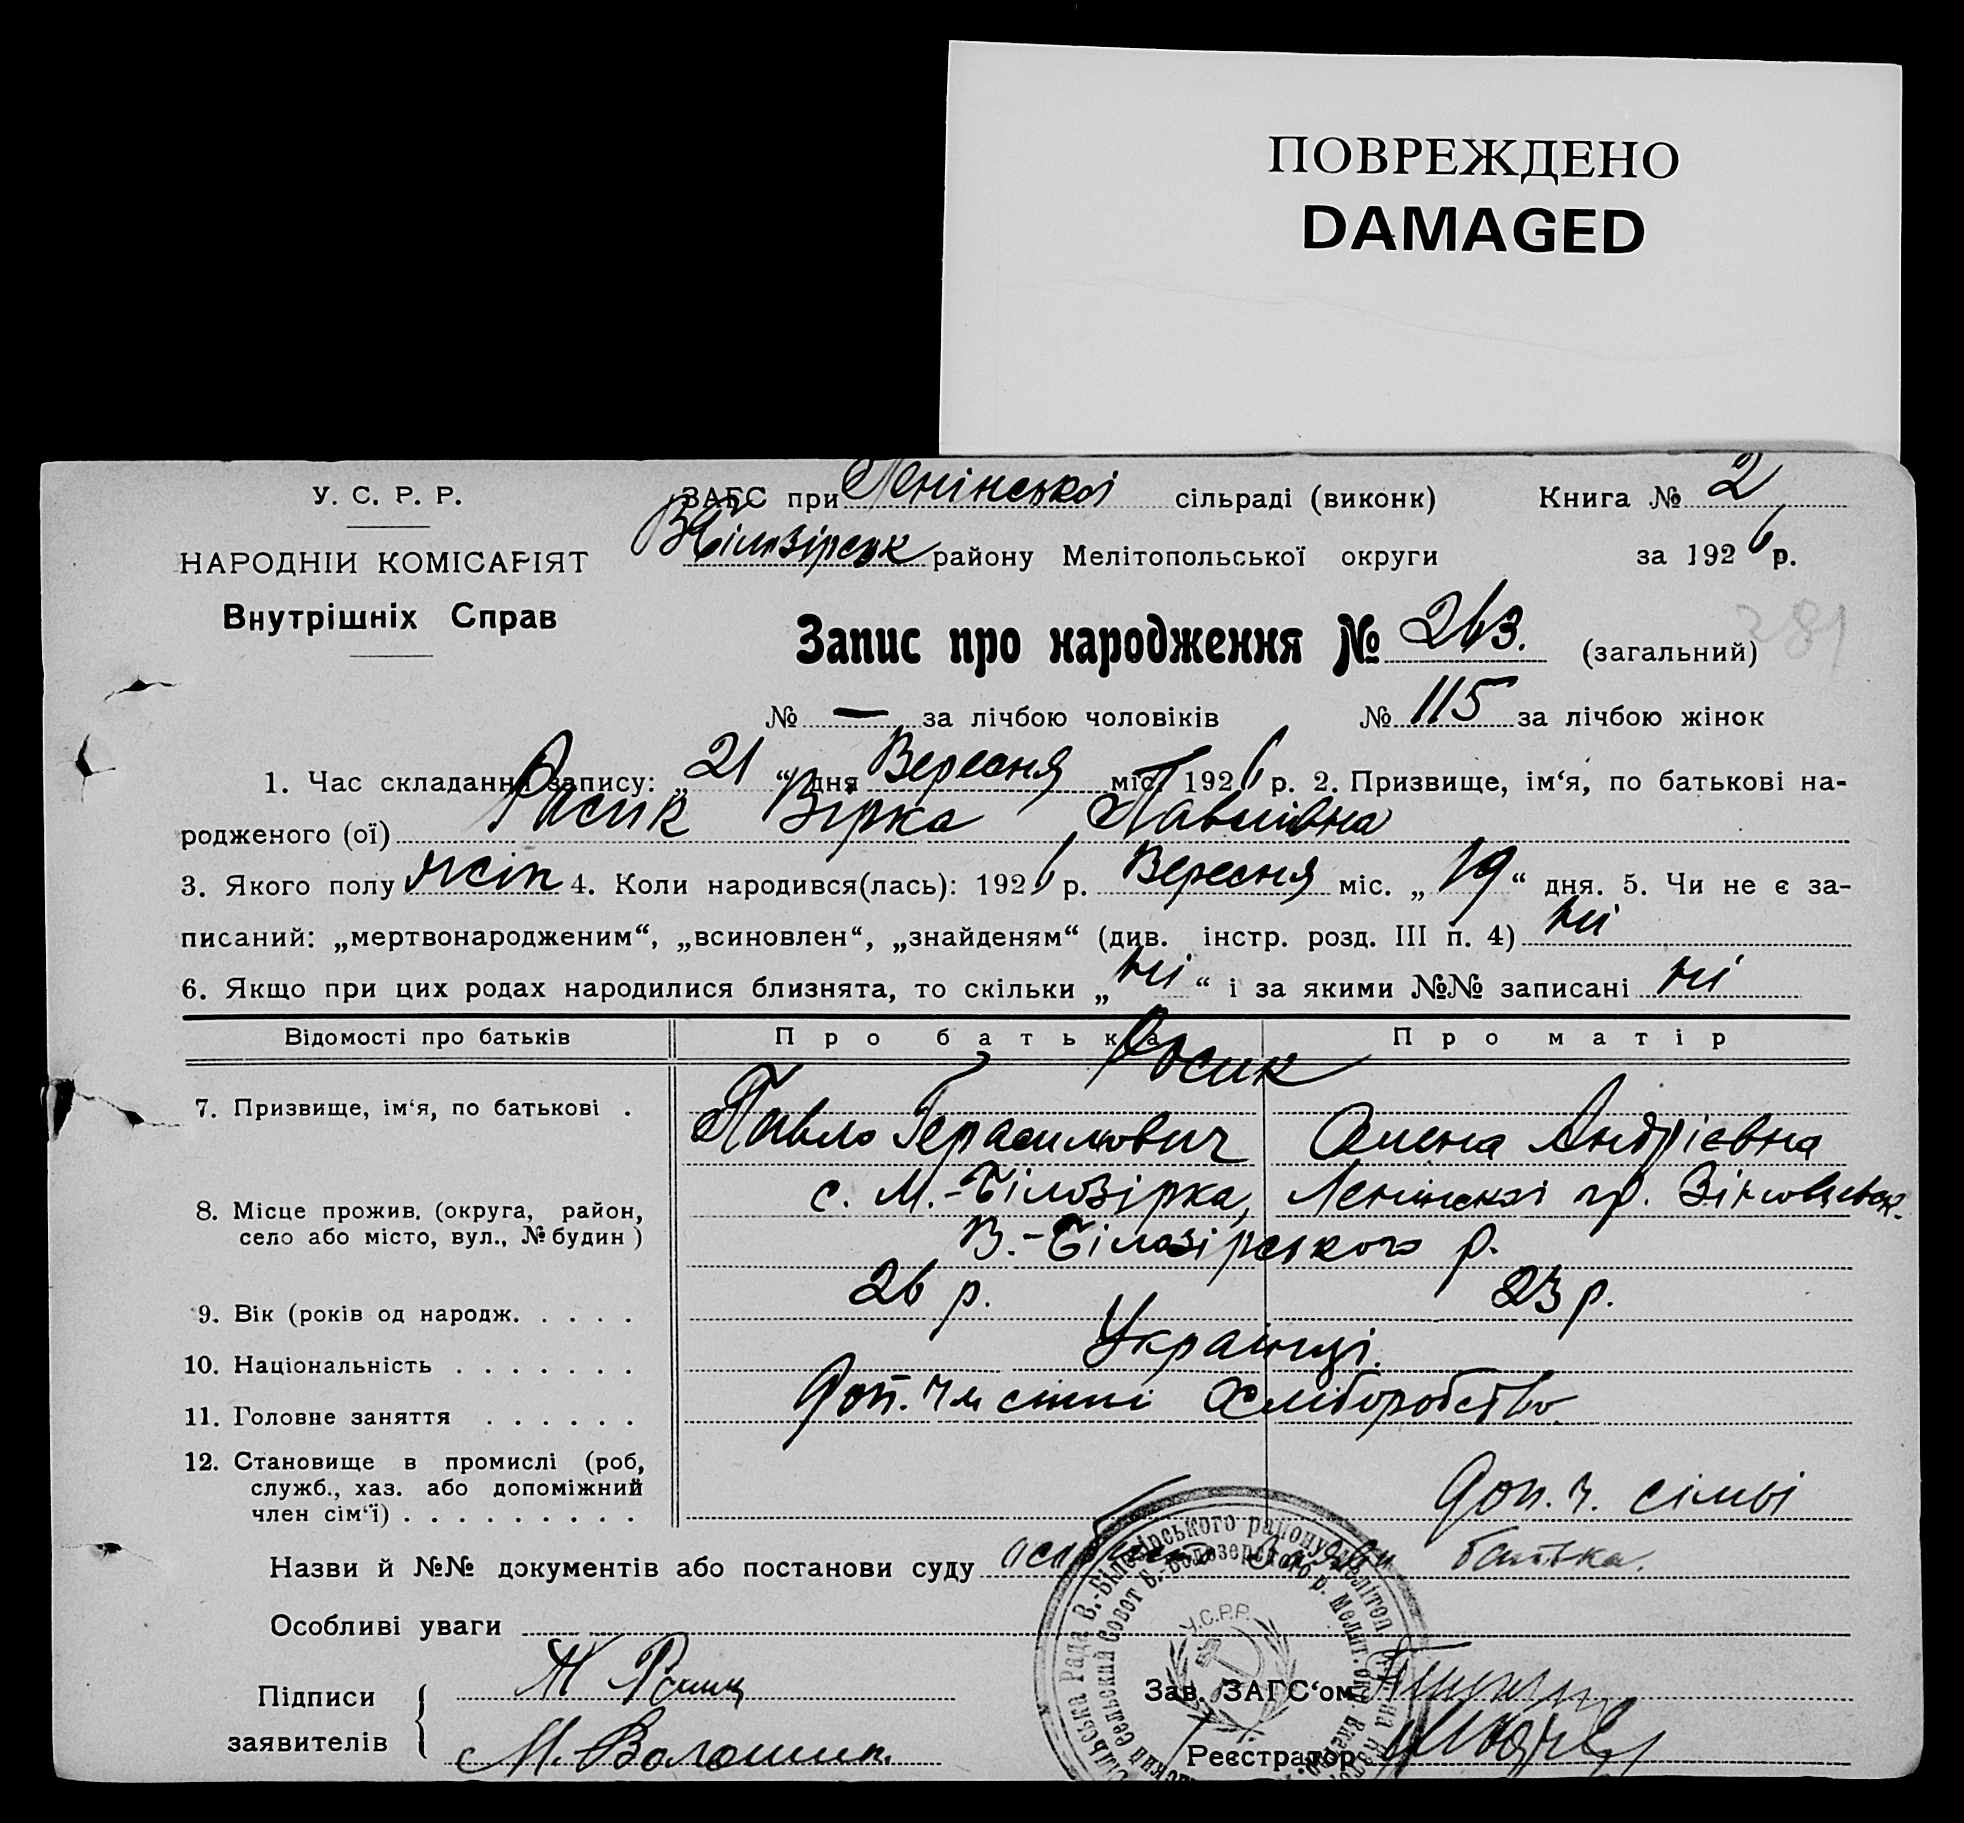 ПОВРЕЖДЕНО
DAMAGED
У. С. Р. Р.
ЗАГС при Ленінської сільраді (виконк) Книга № 2
НАРОДНІЙ КОМІСАРІЯТ
ВБілозірськ району Мелітопольської округи за 1926 р.
Внутрішніх Справ
Запис про народження № 263. (загальний) 281
№ — за лічбою чоловіків № 115 за лічбою жінок
1. Час складання запису: „21“ дня Вересня міс. 1926 р. 2. Призвище, ім‘я, по батькові на-
родженого (ої) Росик Вірка Павлівна
3. Якого полу жін 4. Коли народився(лась): 1926 р. Вересня міс. „19“ дня. 5. Чи не є за-
писаний: „мертвонародженим“, „всиновлен“, „знайденям“ (див. інстр. розд. III п. 4) ні
6. Якщо при цих родах народилися близнята, то скільки „ні“ і за якими №№ записані ні
Відомості про батьків Про батька Про матір
Росик
7. Призвище, ім‘я, по батькові . Павло Герасимович Олена Андрієвна
8. Місце прожив. (округа, район, с. М.-Білозірка, Ленінскої
село або місто, вул., № будин ) В.-Білозірського р.
9. Вік (років од народж. . . . . 26 р. 23 р.
10. Національність . . . . . . . Українці.
11. Головне заняття . . . . . . Хліборобство
12. Становище в промислі (роб,
служб., хаз. або допоміжний Доп. ч. сімьі
член сім‘ї) . . . . . . . . .
Назви й №№ документів або постанови суду батька.
Особливі уваги
Підписи
заявителів М. Волошин.
Зав. ЗАГС‘ом
Реєстратор
У.С.Р.Р.